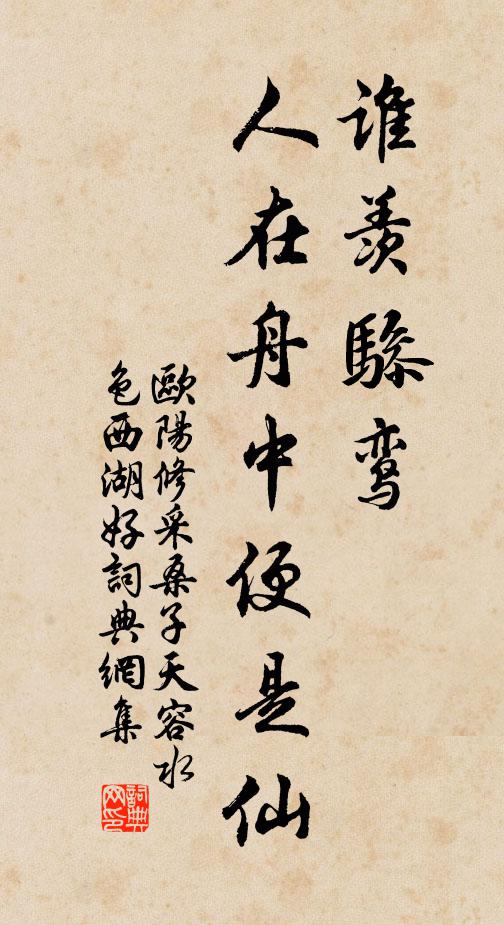 谁羡骖鸾
人在舟中便是仙
歐陽修采桑子天容水
色西湖好詞典網集
詞典
网印